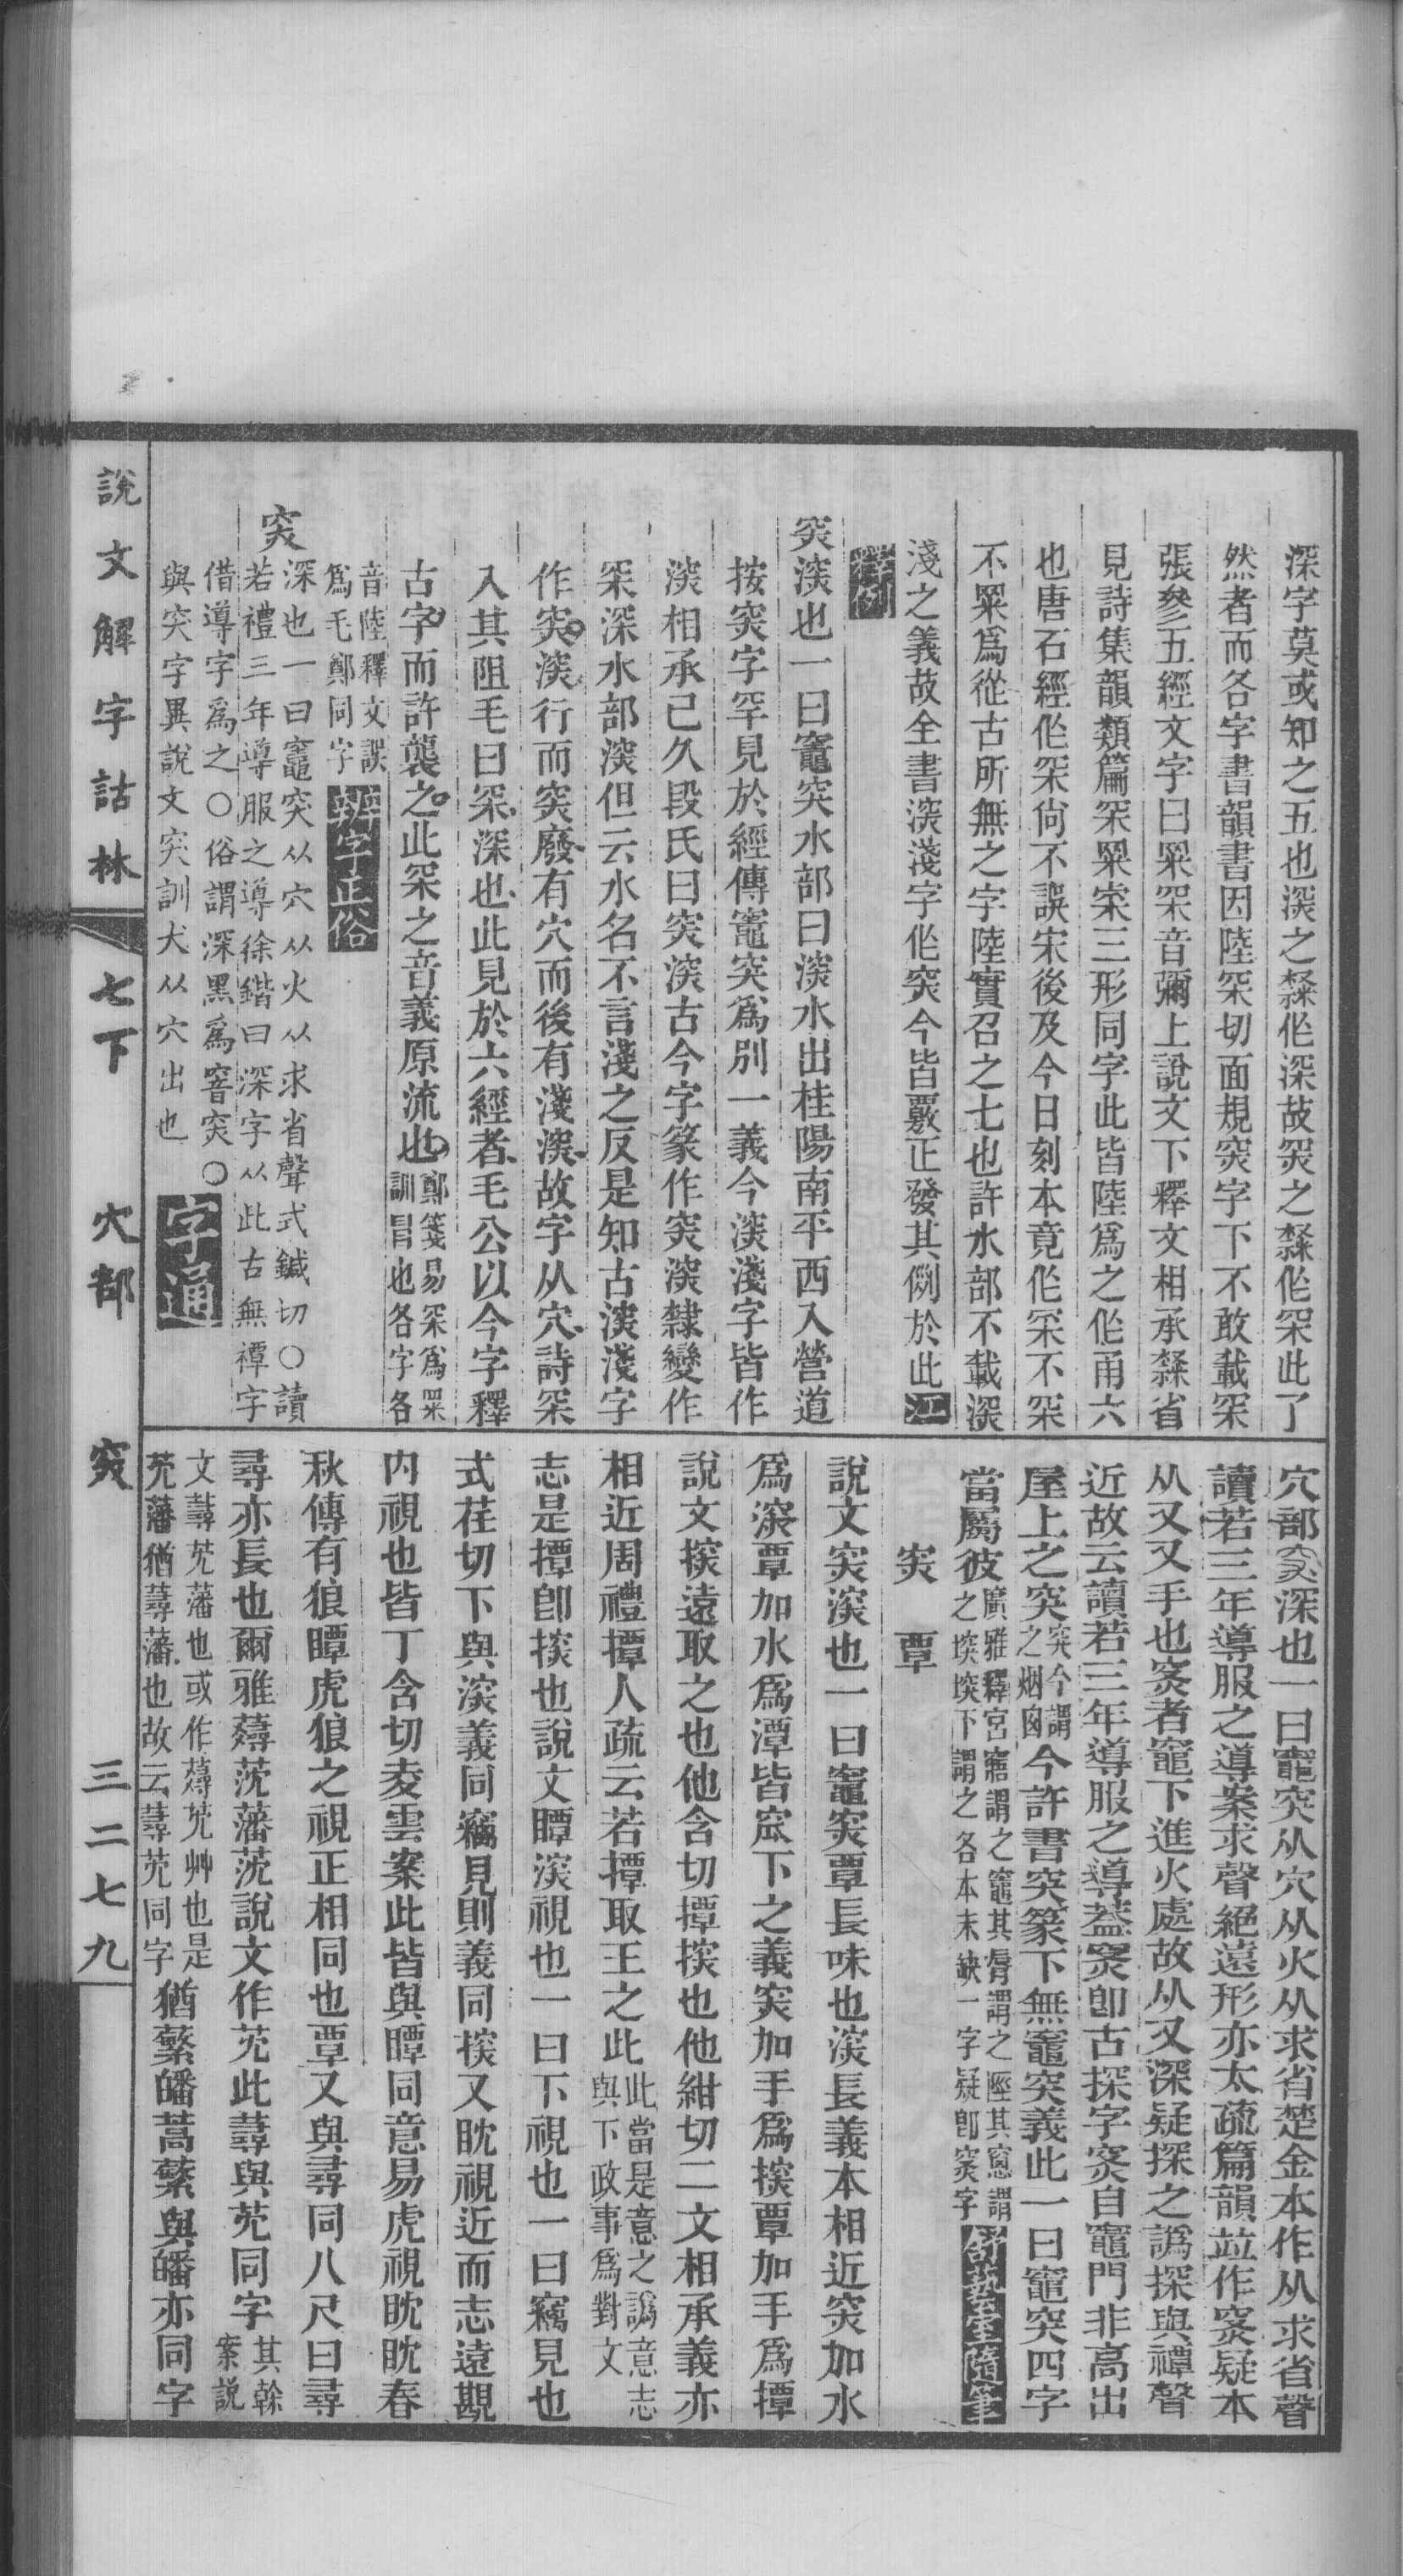 深字莫或知之五也湥之𥻦㐰深故㝥之𥻦㐰罙此了
然者而各字書韻書因陸罙切面規㝥字下不敢載罙
張參五經文字曰𥥍罙音彌上說文下釋文相承𥻦省
見詩集韻類篇罙𥥍𡩡三形同字此皆陸爲之㐰甬六
也唐石經㐰罙尙不誤宋後及今日刻本竟㐰罙不罙
不𥥍爲從古所無之字陸實召之七也許水部不載深
淺之義故全書湥淺字㐰㝥今皆覈正發其例於此
㝥湥也一曰竈突水部曰湥水出桂陽南平西入營道
按㝥字罕見於經傳竈突爲別一義今湥淺字皆作
湥相承已久段氏曰㝥湥古今字篆作㝥湥隸變作
罙深水部湥但云水名不言淺之反是知古湥淺字
作㝥湥行而㝥廢有穴而後有淺湥故字从穴詩罙
入其阻毛曰罙深也此見於六經者毛公以今字釋
古字而許襲之此罙之音義原流也鄭箋易罙爲𥥍
訓冒也各字各
音陸釋文誤
爲毛鄭同字 辨字正俗
㝥
深也一曰竈突从穴从火从求省聲式鍼切○讀
若禮三年導服之導徐鍇曰深字从此古無禫字
借導字爲之○俗謂深黑爲窨㝥○
與突字異說文突訓犬从穴出也 字通
穴部㝥深也一曰竈突从穴从火从求省楚金本作从求省聲
讀若三年導服之導案求聲絕遠形亦太疏篇韻竝作穼疑本
从又又手也穼者竈下進火處故从又深疑探之譌探與禫聲
近故云讀若三年導服之導葢穼卽古探字穼自竈門非高出
屋上之突突今謂
之烟囪今許書突篆下無竈突義此一曰竈突四字
當屬彼廣雅釋宮窹謂之竈其脣謂之陘其窻謂
之堗堗下謂之各本末缺一字疑卽穼字 舒蓺室隨筆
㝥 覃
說文㝥湥也一曰竈㝥覃長味也湥長義本相近㝥加水
爲湥覃加水爲潭皆窊下之義㝥加手爲撢覃加手爲撢
說文探遠取之也他含切撢探也他紺切二文相承義亦
相近周禮撢人疏云若撢取王之此此當是意之譌意志
與下政事爲對文
志是撢卽探也說文瞫湥視也一曰下視也一曰竊見也
式荏切下與湥義同竊見則義同探又眈視近而志遠覲
内視也皆丁含切夌雲案此皆與瞫同意易虎視眈眈春
秋傳有狼瞫虎狼之視正相同也覃又與尋同八尺曰尋
尋亦長也爾雅薚莐藩莐說文作芫此蕁與芫同字其𠦝
案說
文蕁芫藩也或作薚芫艸也是
芫藩猶蕁藩也故云蕁芫同字猶蘩皤蒿蘩與皤亦同字
說文解字詁林 七下 穴部 㝥 三二七九